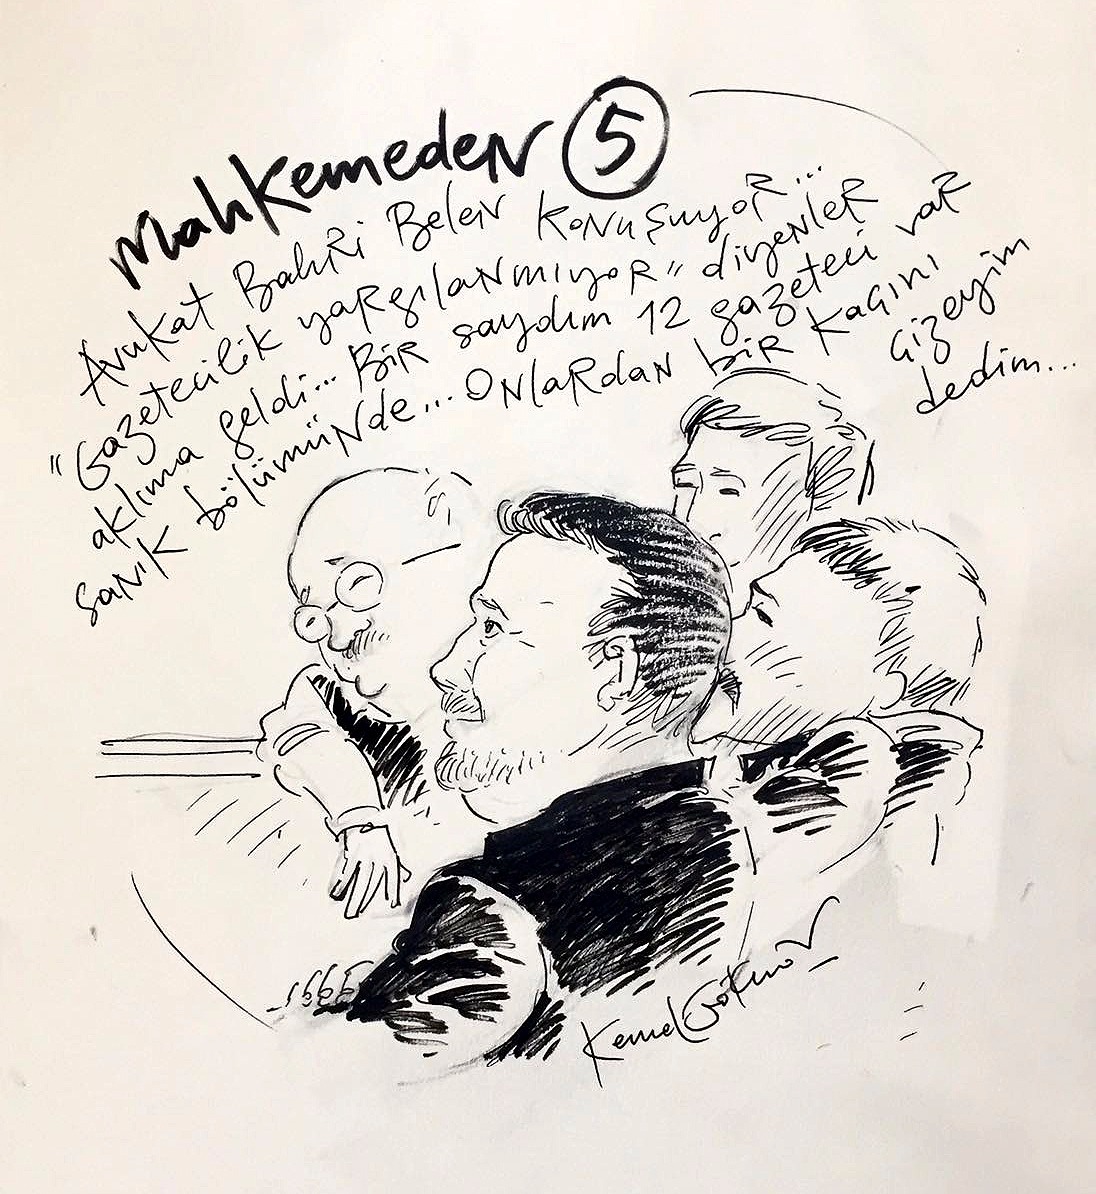 Mahkemeden 5
Avukat Bahri Belen konuşuyor...
"Gazetecilik yargılanmıyor" diyenler
aklıma geldi... Bir saydım 12 gazeteci var
sanık bölümünde... Onlardan bir kaçını
çizeyim
dedim...
Kemal Gökhan